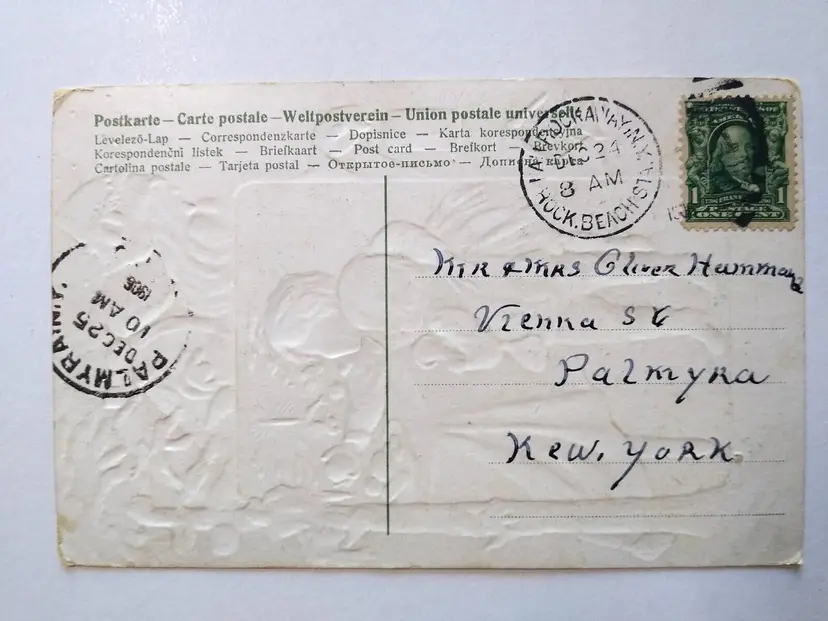 Postkarte — Carte postale — Weltpostverein — Union postale universelle
Levelező-Lap — Correspondenzkarte — Dopisnice — Karta korespondencyjna
Korespondenční lístek — Briefkaart — Post card — Brefkort — Brevkort
Cartolina postale — Tarjeta postal — Открытое письмо — Дописна карта
FAR ROCKAWAY, N.Y.
DEC 24
8 AM
ROCK. BEACH STA.
AMERICA
1 1
POSTAGE
ONE CENT
Mr & Mrs Oliver Hammond
Vienna St
Palmyra
New. York.
PALMYRA
DEC 25
10 AM
1906